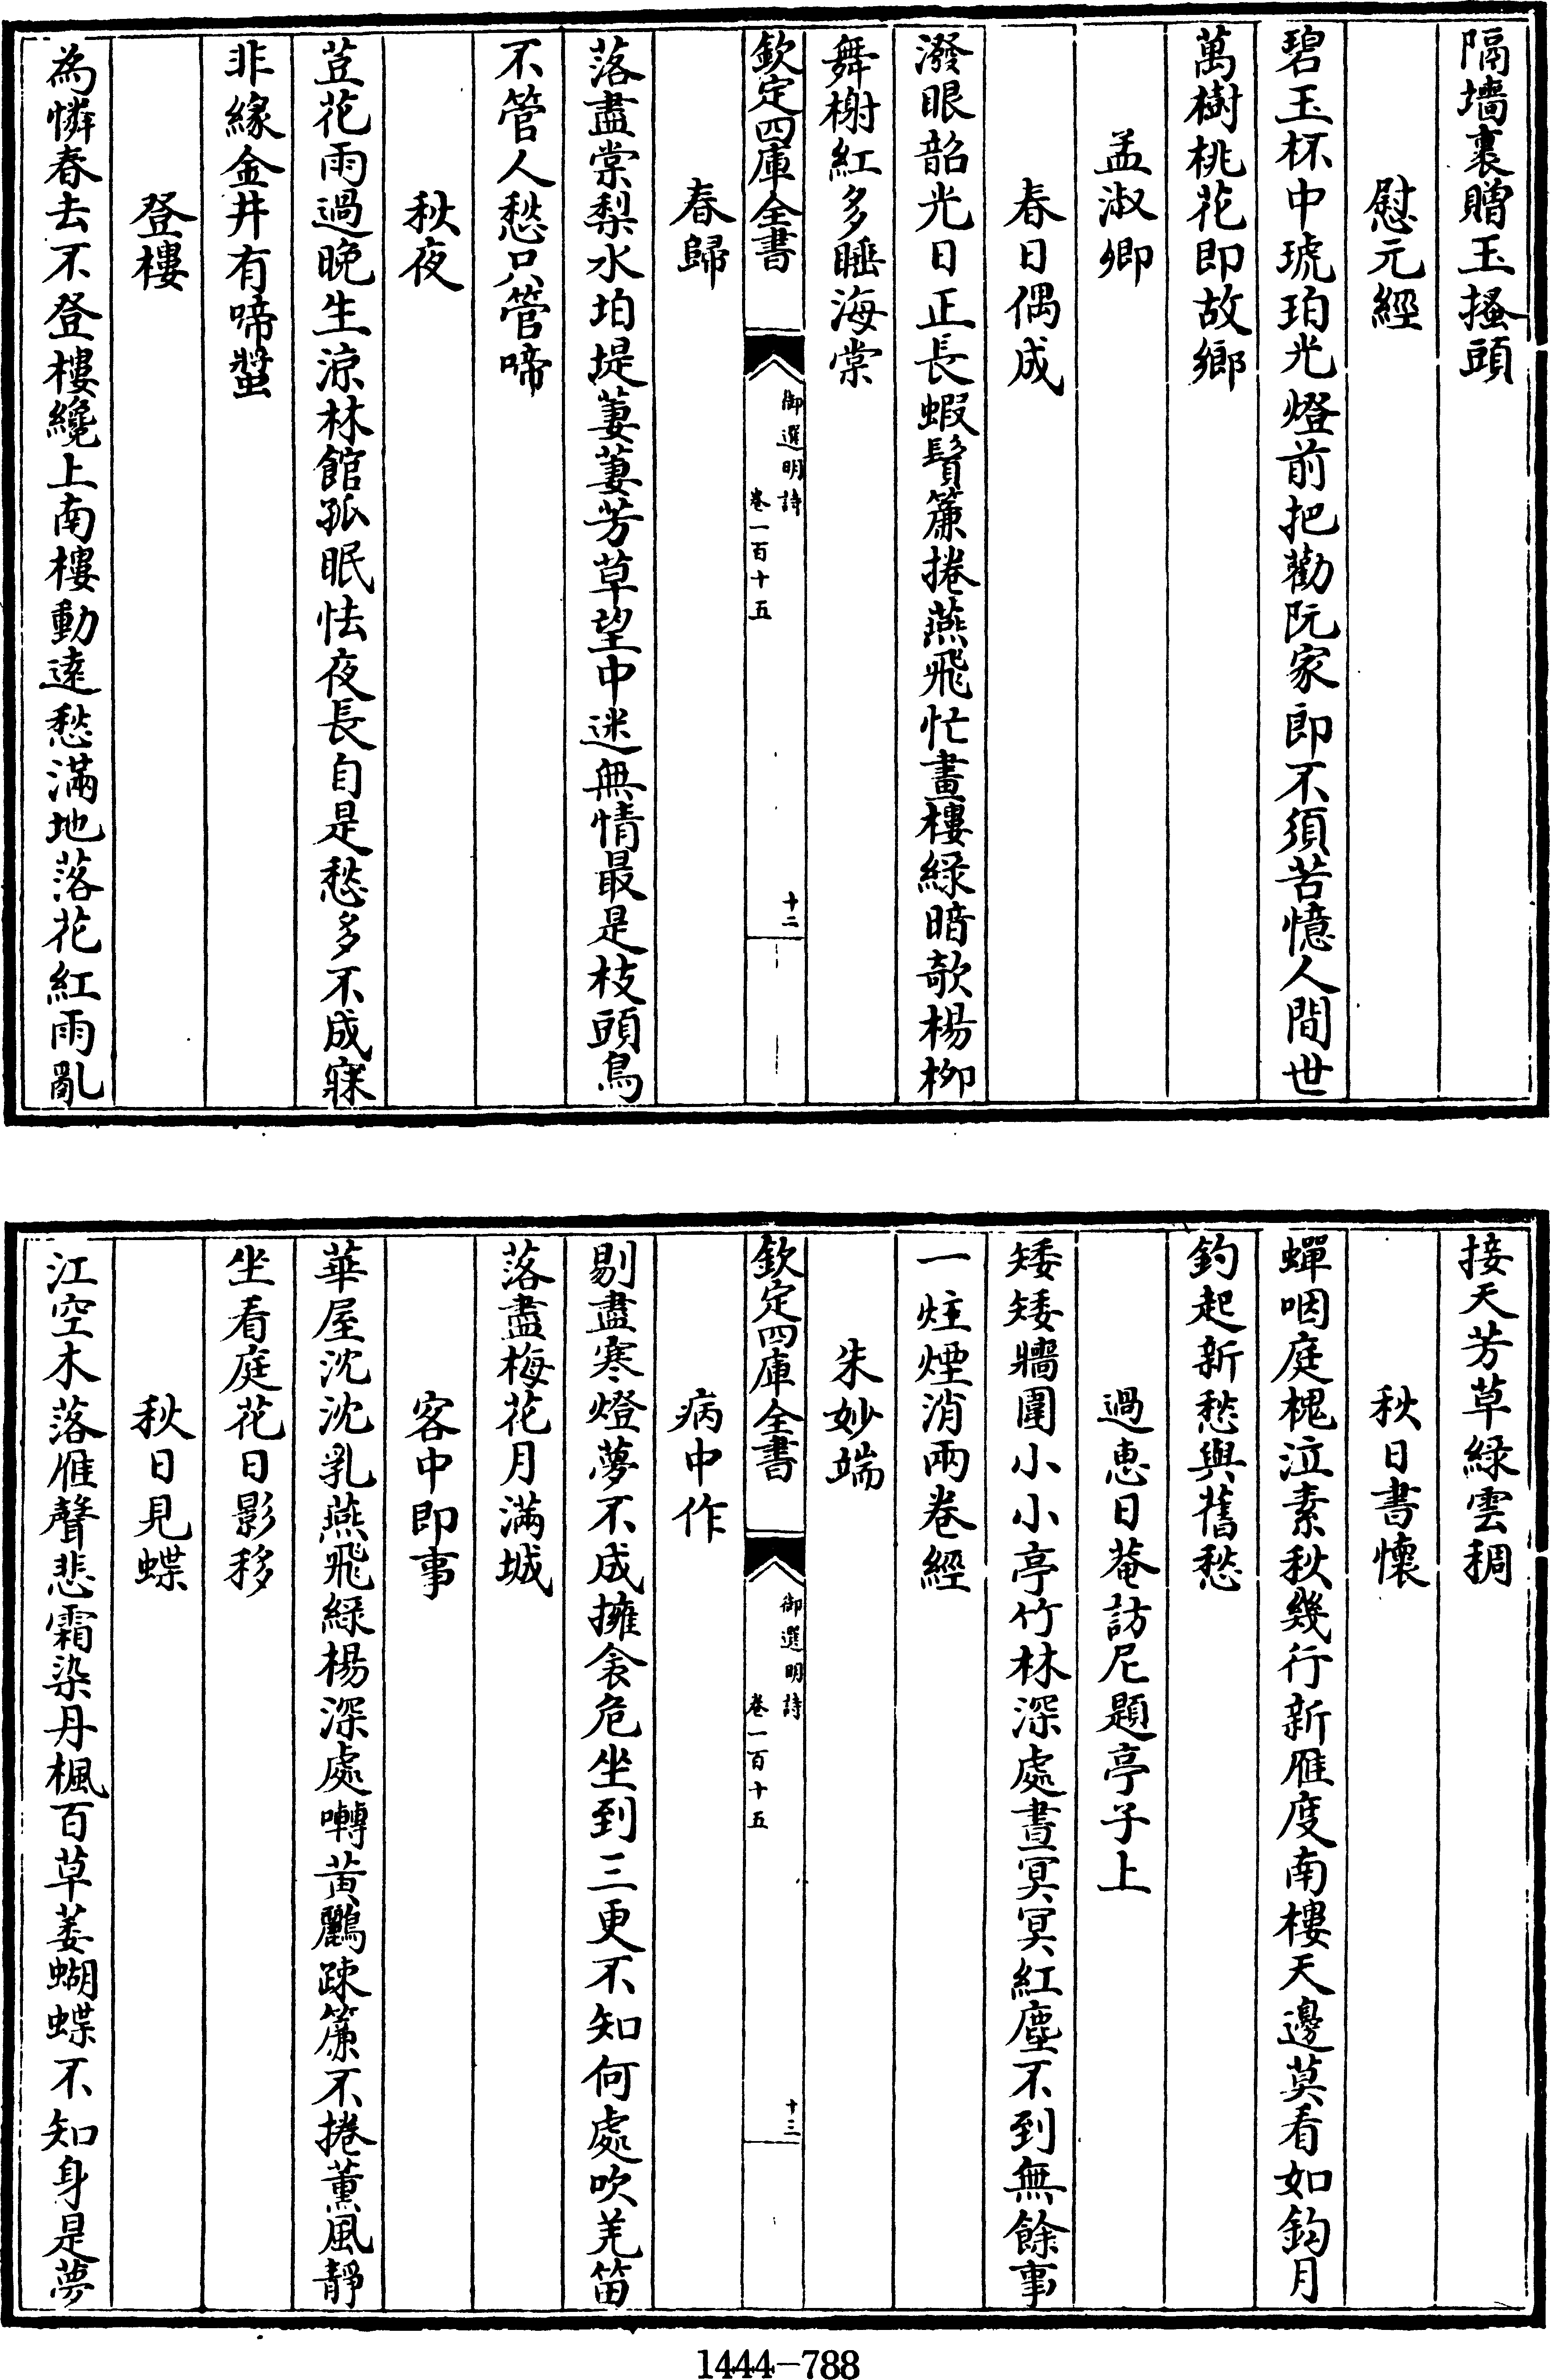 隔墻裏贈玉搔頭
慰元經
碧玉杯中琥珀光燈前把勸阮家郎不須苦憶人間世
萬樹桃花即故鄉
孟淑卿
春日偶成
潑眼韶光日正長蝦鬚簾捲燕飛忙畫樓緑暗欹楊柳
舞榭紅多睡海棠
欽定四庫全書
御選明詩
卷一百十五
十二
春歸
落盡棠梨水珀堤萋萋芳草望中迷無情最是枝頭鳥
不管人愁只管啼
秋夜
荳花雨過晚生涼林館孤眠怯夜長自是愁多不成寐
非緣金井有啼螿
登樓
為憐春去不登樓纔上南樓動逺愁滿地落花紅雨亂
接天芳草緑雲稠
秋日書懷
蟬咽庭槐泣素秋幾行新雁度南樓天邊莫看如鈎月
釣起新愁與舊愁
過惠日菴訪尼題亭子上
矮矮牆圍小小亭竹林深處晝冥冥紅塵不到無餘事
一炷煙消兩卷經
朱妙端
欽定四庫全書
御選明詩
卷一百十五
十三
病中作
剔盡寒燈夢不成擁衾危坐到三更不知何處吹羌笛
落盡梅花月滿城
客中即事
華屋沈沈乳燕飛緑楊深處囀黃鸝疎簾不捲薰風靜
坐看庭花日影移
秋日見蝶
江空木落雁聲悲霜染丹楓百草萎蝴蝶不知身是夢
1444-788